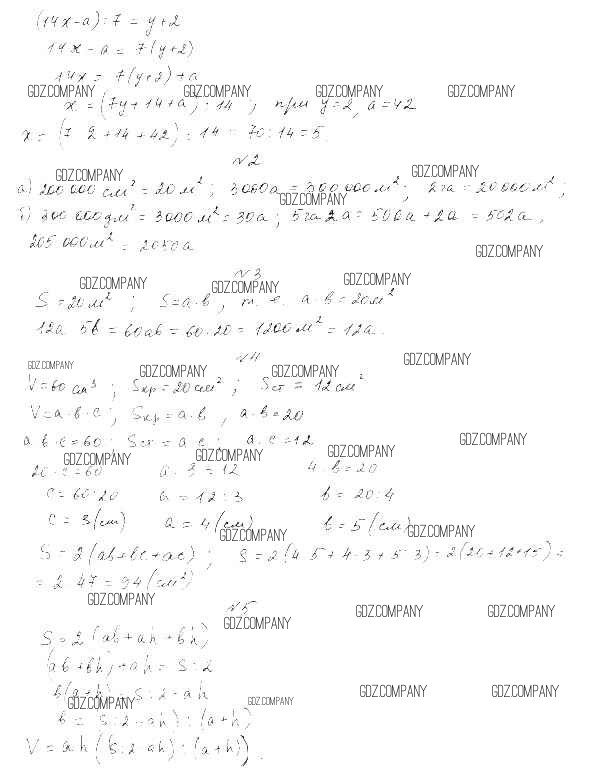 (14x-a):7 = y+2
14x - a = 7(y+2)
14x = 7(y+2)+a
GDZ.COMPANY GDZ.COMPANY GDZ.COMPANY GDZ.COMPANY
x = (7y+14+a):14 ; при y=2, a=42
x = (7 2+14+42):14 = 70:14=5.
№2
GDZ.COMPANY GDZ.COMPANY
а) 200 000 см² = 20 м² ; 3000а = 300 000 м² ; 2га = 20000 м² ;
GDZ.COMPANY
б) 300 000 дм² = 3000 м² = 30а ; 5га 2а = 500а + 2а = 502а,
205 000 м² = 2050а
GDZ.COMPANY
№3
GDZ.COMPANY GDZ.COMPANY GDZ.COMPANY
S = 20 м² ; S = a·b , т. е. a·b = 20 м²
12a 5b = 60ab = 60·20 = 1200 м² = 12а.
№4
GDZ.COMPANY GDZ.COMPANY GDZ.COMPANY GDZ.COMPANY
V = 60 см³ ; Sкр = 20 см² ; Sст = 12 см²
V = a·b·c ; Sкр = a·b , a·b = 20
a b·c = 60 ; Sст = a c ; a·c = 12
GDZ.COMPANY GDZ.COMPANY GDZ.COMPANY GDZ.COMPANY
20·c = 60 a·3 = 12 4·b = 20
c = 60:20 a = 12:3 b = 20:4
c = 3(см) a = 4(см) b = 5(см)
GDZ.COMPANY GDZ.COMPANY
S = 2(ab+bc+ac) ; S = 2(4 5+4·3+5 3) = 2(20+12+15) =
= 2 47 = 94 (см²)
GDZ.COMPANY
№5
GDZ.COMPANY GDZ.COMPANY GDZ.COMPANY
S = 2(ab+ah+bh)
(ab+bh)+ah = S:2
b(a+h) = S:2-ah
GDZ.COMPANY GDZ.COMPANY GDZ.COMPANY GDZ.COMPANY
b = (S:2-ah):(a+h)
V = ah(S:2 ah):(a+h)).